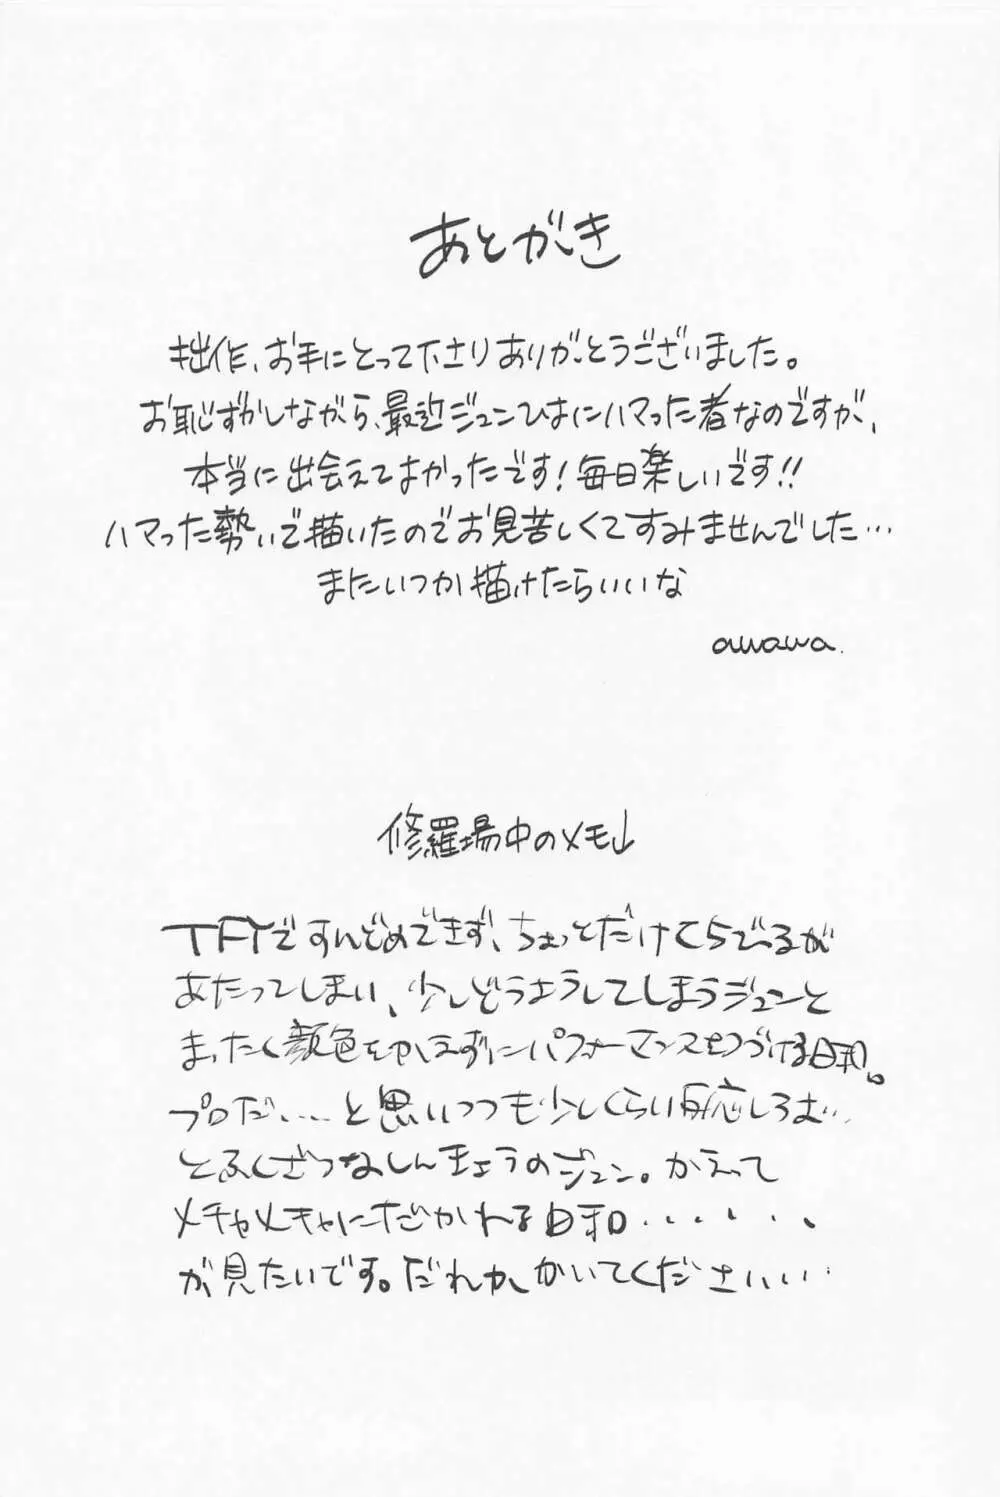 あとがき
拙作、お手にとって下さりありがとうございました。
お恥ずかしながら、最近ジュンひよにハマった者なのですが、
本当に出会えてよかったです!毎日楽しいです!!
ハマった勢いで描いたのでお見苦しくてすみませんでした…
またいつか描けたらいいな
awawa.
修羅場中のメモ↓
TFYですんどめできず、ちょっとだけくちびるが
あたってしまい、少しどうようしてしまうジュンと
まったく顔色をかえずにパフォーマンスをつづける日和。
プロだ....と思いつつも少しくらい反応しろよ…
とふくざつなしんきょうのジュン。かえって
メチャメチャにだかれる日和.......
が見たいです。だれかかいてくださいい…